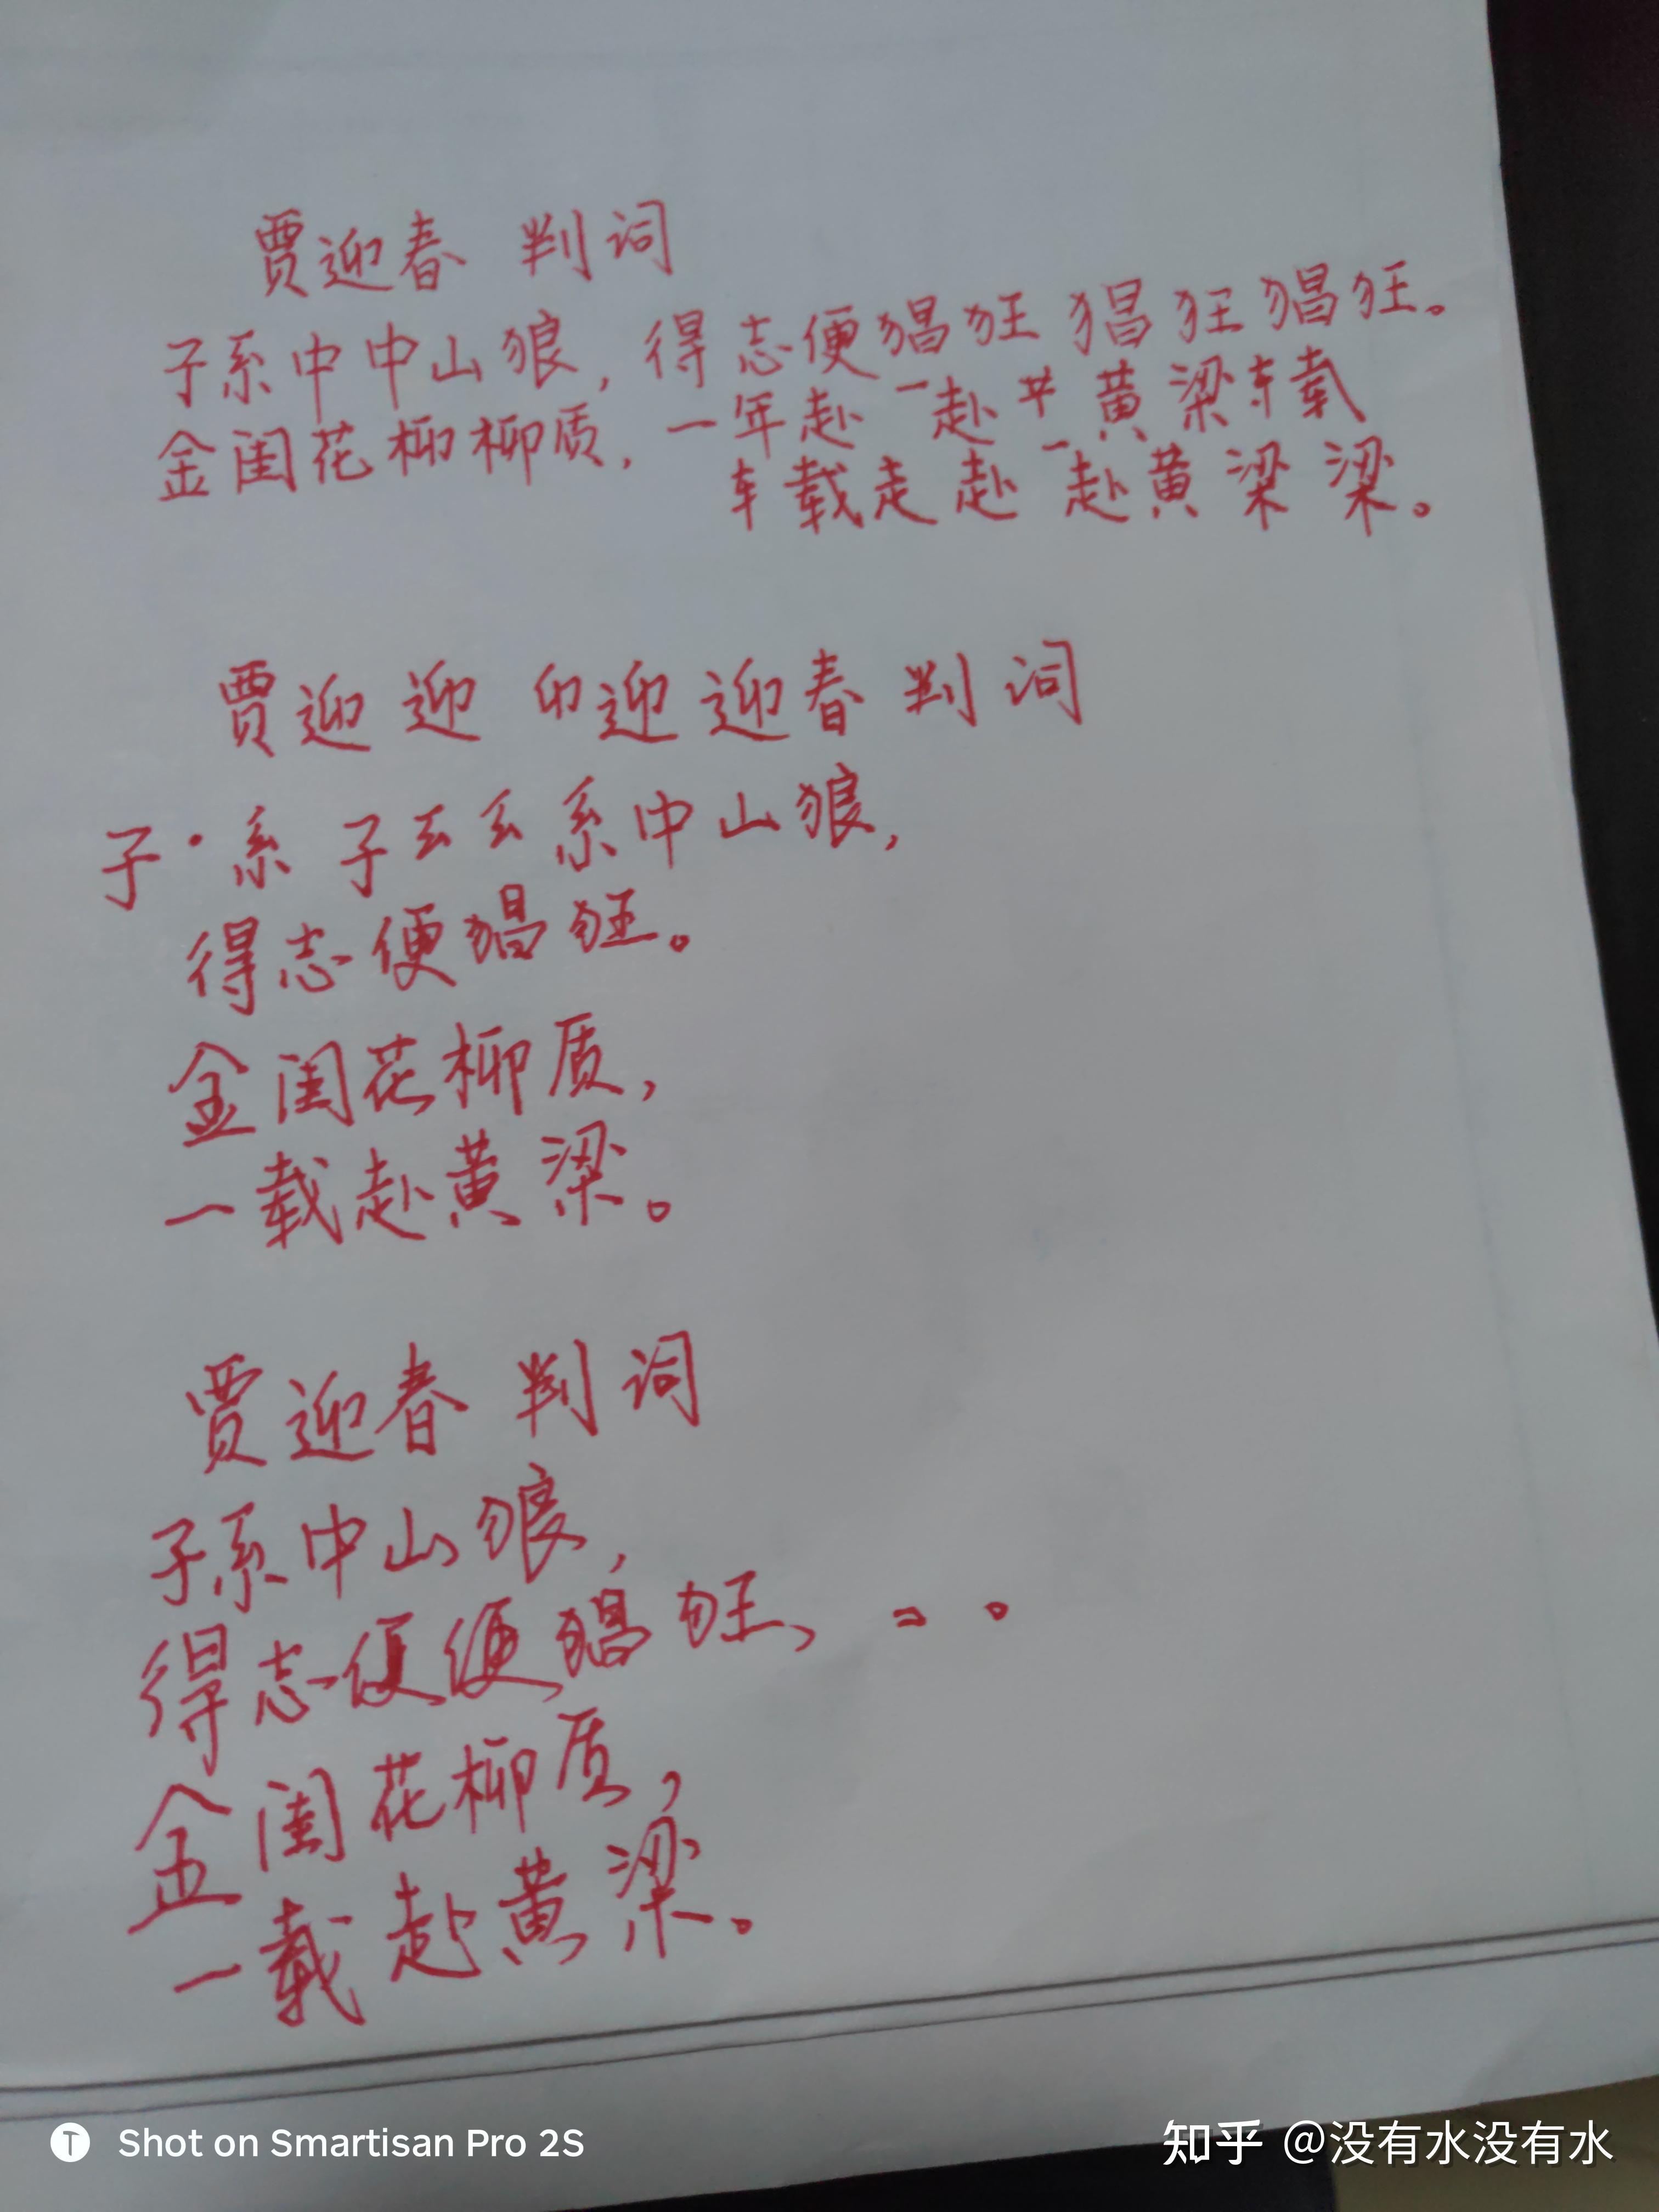 贾迎春 判词
子系中中山狼，得志便猖狂猖狂猖狂。
金闺花柳柳质，一年赴一赴 黄梁车载
车载走赴一赴黄梁梁。
贾迎迎卬迎迎春判词
子·系子玄玄系中山狼，
得志便猖狂。
金闺花柳质，
一载赴黄梁。
贾迎春判词
子系中山狼，
得志便便猖狂、。。
金闺花柳质，
一载赴黄梁。
Shot on Smartisan Pro 2S
知乎 @没有水没有水